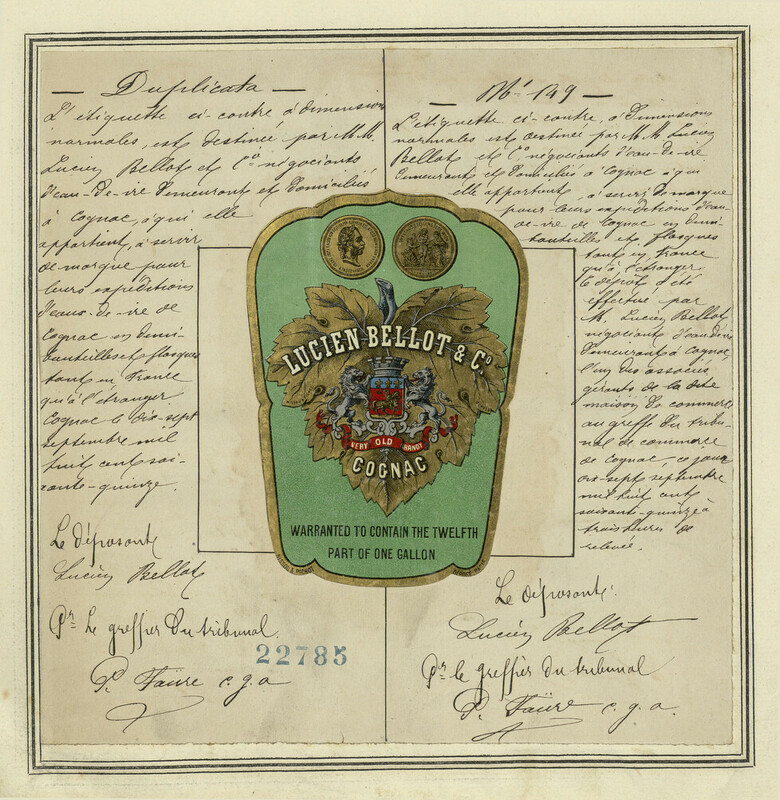 — Duplicata —
L'étiquette ci-contre à dimensions
normales, est destinée par M.M.
Lucien Bellot et Cie négociants
d'eau-de-vie demeurant et domiciliés
à Cognac, à qui elle
appartient, à servir
de marque pour
leurs expéditions
d'eaux-de-vie de
Cognac en demi-
bouteilles et flasques
tant en France
qu'à l'étranger.
Cognac le dix-sept
septembre mil
huit cent soi-
xante-quinze.
Le déposant
Lucien Bellot
Pr le greffier du tribunal
22785
P. Faure c.g.a
— No 149 —
L'étiquette ci-contre, à dimensions
normales est destinée par M.M. Lucien
Bellot et Cie négociants d'eau-de-vie
demeurant et domiciliés à Cognac à qui
elle appartient, à servir de marque
pour leurs expéditions d'eau-
de-vie de Cognac en demi-
bouteilles et flasques
tant en France
qu'à l'étranger.
Le dépôt a été
effectué par
M. Lucien Bellot
négociant d'eau-de-vie
demeurant à Cognac
l'un des associés
gérants de la dite
maison de commerce
au greffe du tribu-
nal de commerce
de Cognac, ce jour
dix-sept septembre
mil huit cent
soixante-quinze à
trois heures de
relevée.
Le déposant:
Lucien Bellot
Pr le greffier du tribunal
P. Faure c.g.a.
LUCIEN BELLOT & Co
VERY OLD BRANDY
COGNAC
WARRANTED TO CONTAIN THE TWELFTH
PART OF ONE GALLON